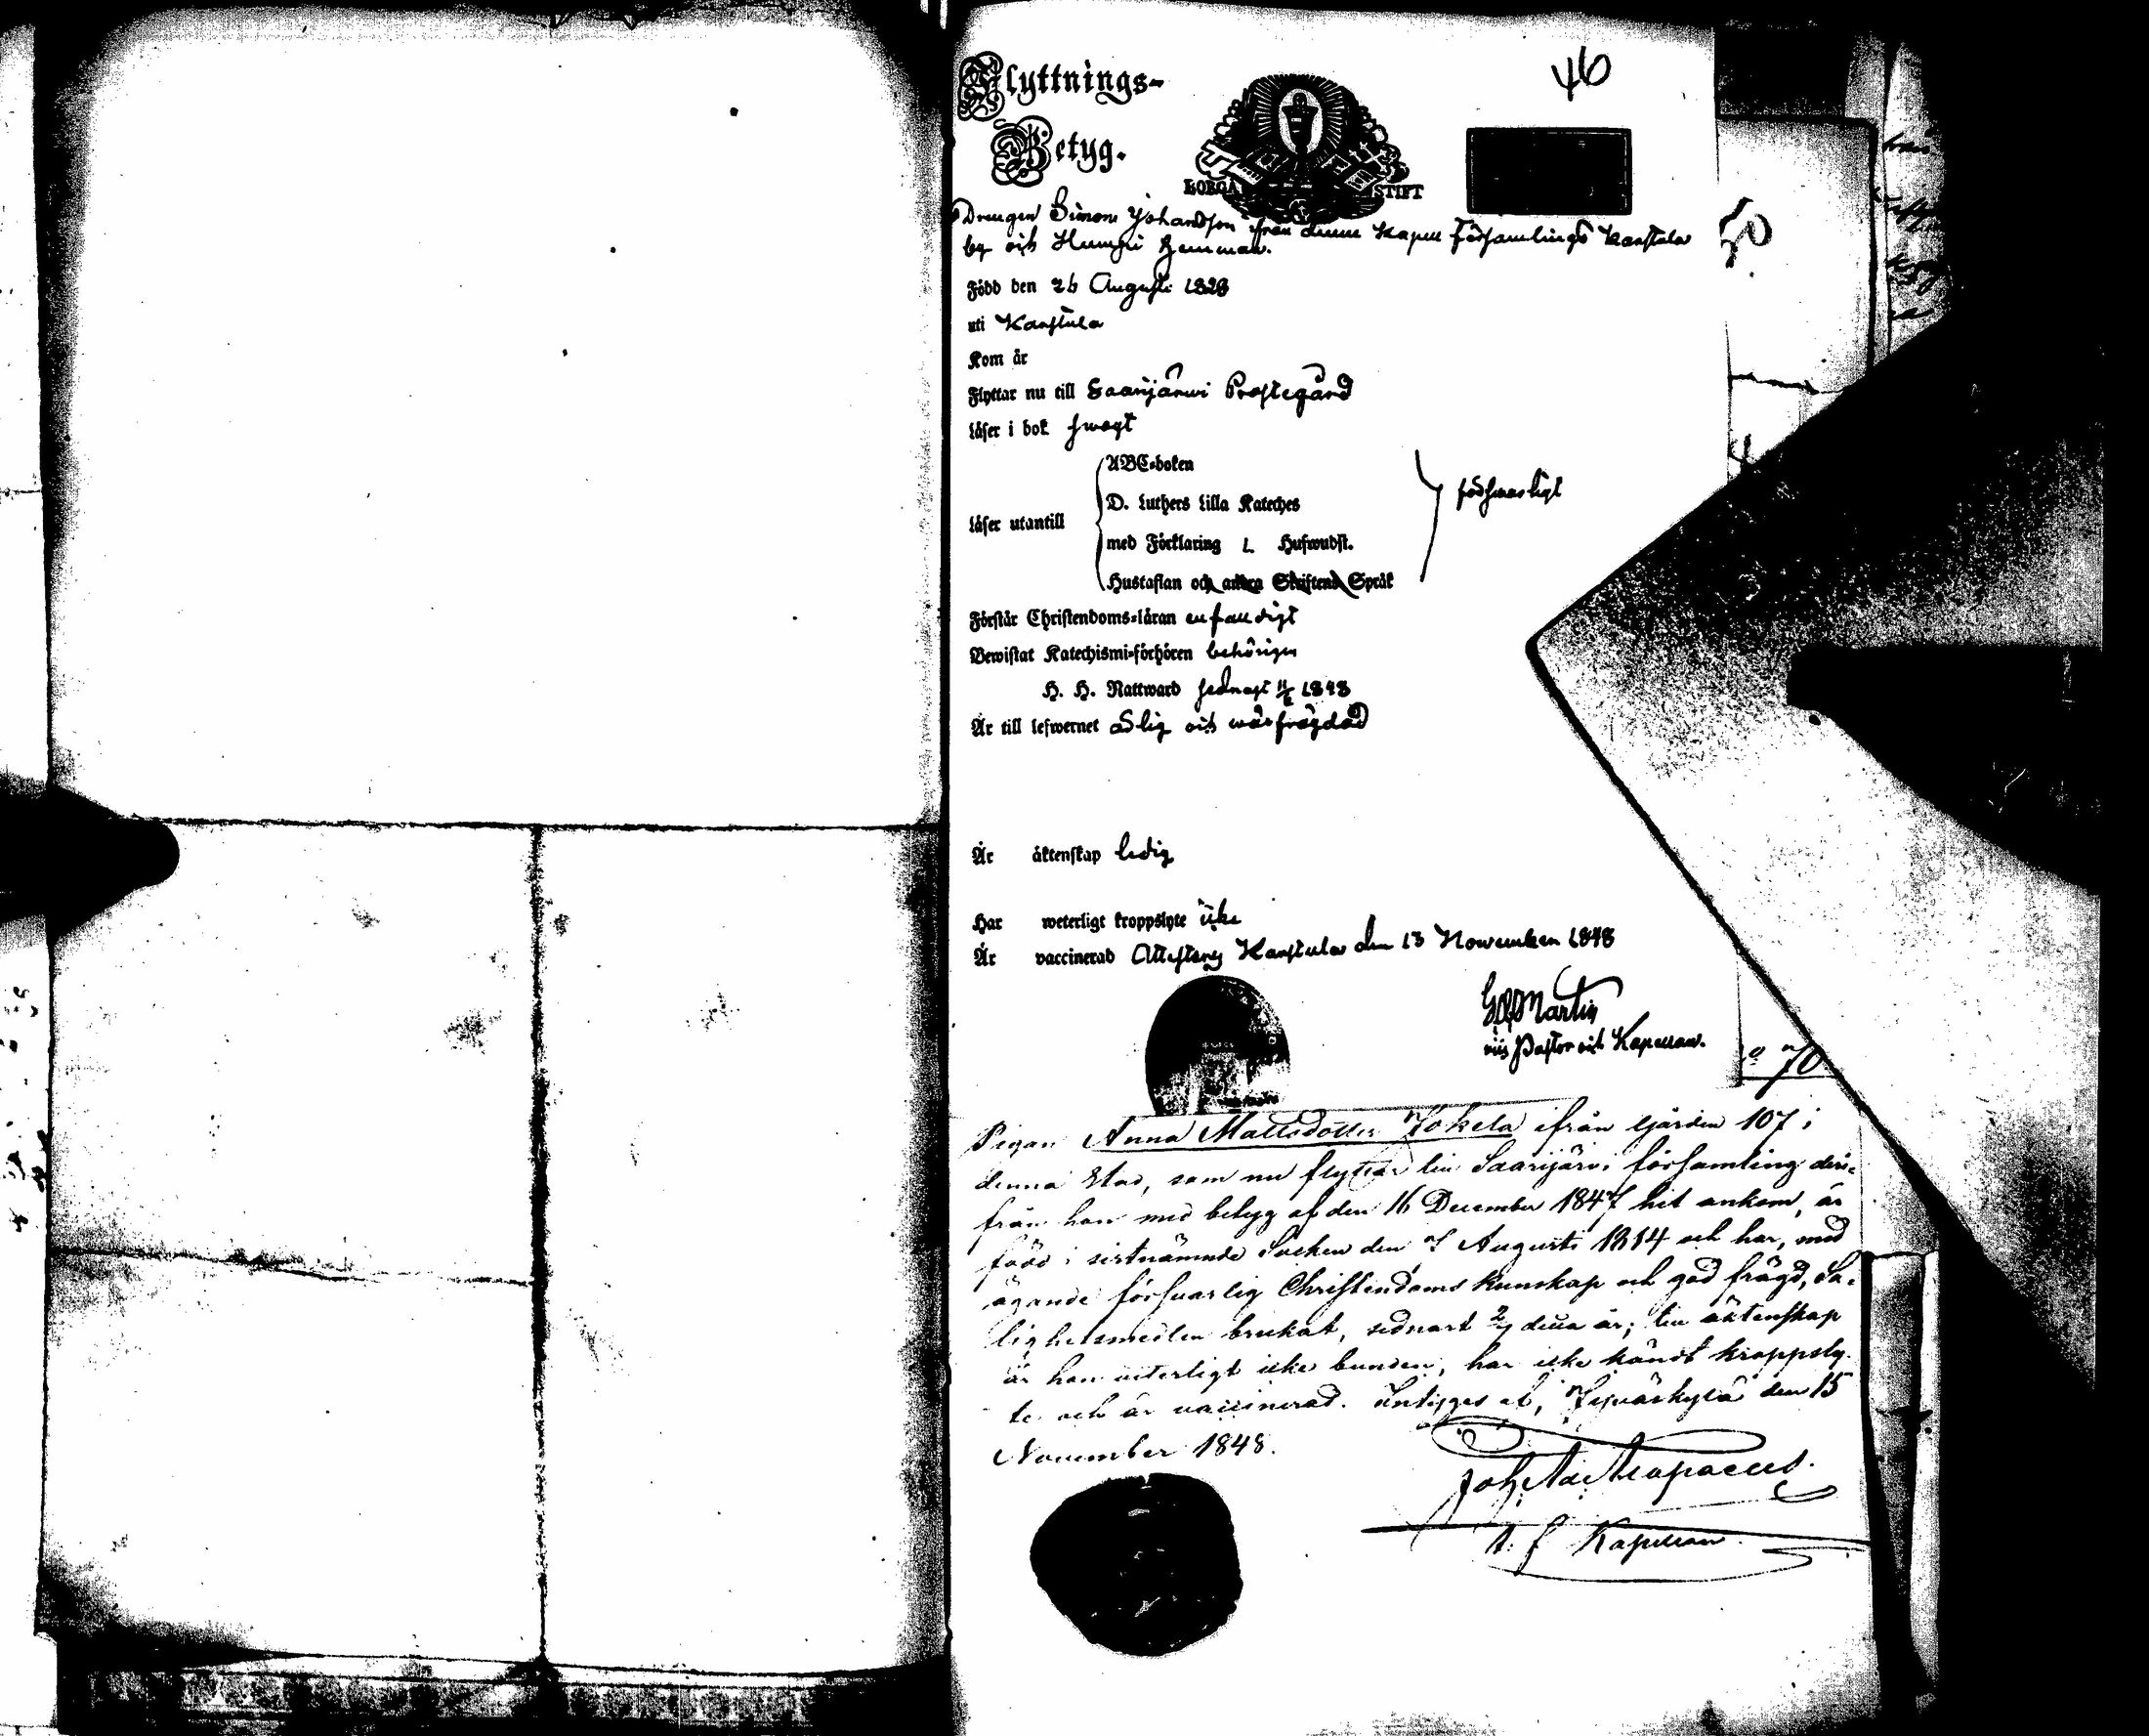 46
Flyttnings-
Betyg.
BORGÅ STIFT
Drengen Simon Johansson ifrån denne Kapell Församlings Karstula
by och Humpi hemman.
Född den 26 Augusti 1828
uti Karstula
Kom år
Flyttar nu till Saarijärwi Prostegård
Läser i bok swagt
ABC-boken
D. Luthers Lilla Kateches
Läser utantill
försvarligt
med Förklaring 1. Hufwudst.
Hustaflan och andra Skriftens Språk
Förstår Christendoms-läran enfaldigt
Bewistat Katechismi-förhören behörigen
H. H. Nattward sednast 11/6 1848
Är till lefwernet ärlig och wäl frägdad
Är äktenskap ledig
Har weterligt kroppslyte icke
Är vaccinerad Attesterar Karstula den 13 November 1848
Martin
vis Pastor och Kapellan.
Pigan Anna Mattsdotter Jokela ifrån gården 107 i
denna Stad, som nu flyttar till Saarijärvi församling deri-
från hon med betyg af den 16 December 1847 hit ankom, är
född i sistnämnde Socken den 7 Augusti 1814 och har, med
ägande försvarlig Christendoms kunskap och god frägd, Sa-
lighetsmedlen brukat, sednast 2/7 detta år; till äktenskap
är hon veterligt icke bunden, har icke kändt kroppsly-
te och är vaccinerad. Intygas af, Jyväskylä den 15
November 1848.
Kapellan.